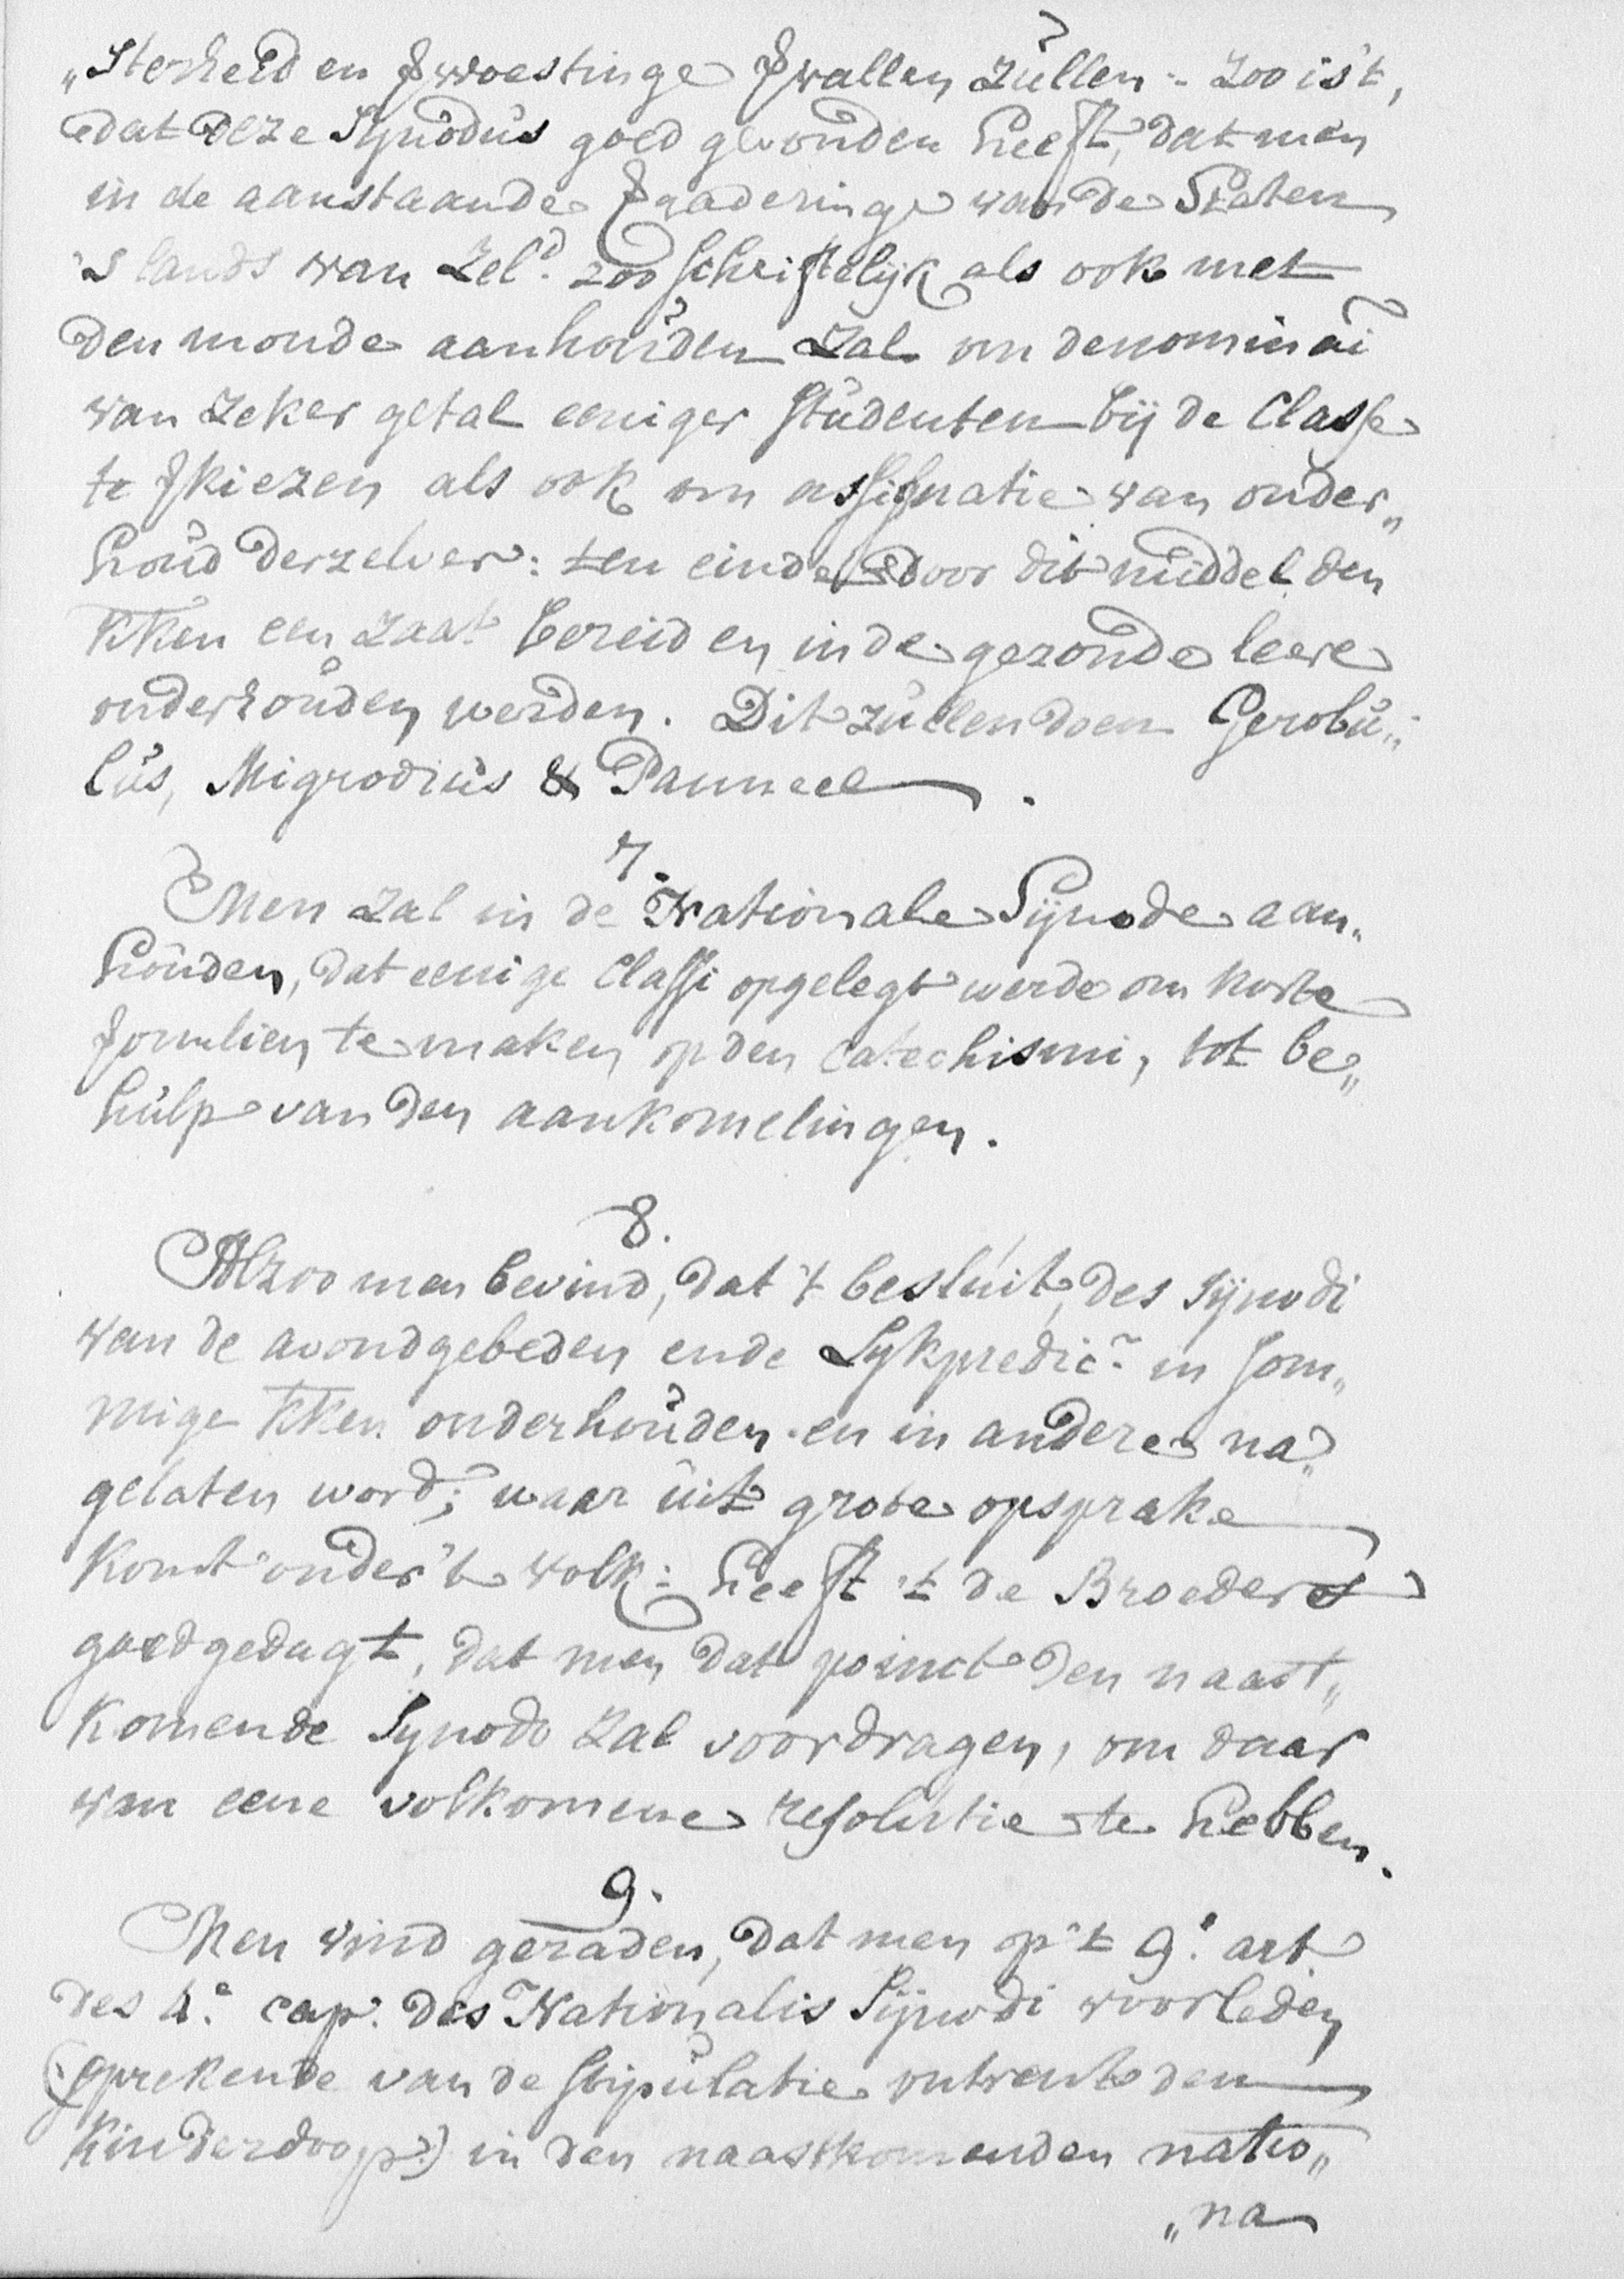 „sterheid en Ꝟwoestinge Ꝟvallen zullen :- zoo is 't,
dat deze Synodus goed gevonden heeft, dat men
in de aanstaande Ꝟgaderinge van de Staten
's lands van Zeld. zoo schriftelijk als ook met
den monde aanhouden zal om denominãi
van zeker getal eeniger studenten bij de Classe
te Ꝟkiezen als ook om assignatie van onder„
houd derzelver: ten einde door dit middel den
kken een zaat bereid en in de gezonde leere
onderhouden werden. Dit zullen doen Gerobu„
lus, Migrodius & Panneel.
7.
Men zal in de Nationale Synode aan„
houden, dat eenige Classi opgelegt werde om korte
formlien te maken op den catechismi, tot be„
hulp van den aankomelingen.
8.
Alzoo men bevind, dat 't besluit des Synodi
van de avondgebeden ende Lykpredic~. in som„
mige kken onderhouden en in andere na„
gelaten word; waar uit grote opsprake
komt onder 't volk: heeft 't de Broeders
goedgedagt, dat men dat poinct den naast„
komende Synodo zal voordragen, om daar
van eene volkomene resolutie te hebben.
9.
Men vind geraden, dat men op 't 9e. art
des 4e. cap. des Nationalis Synodi voorleden
(sprekende van de stipulatie ontrent den
Kinderdoop) in den naastkomenden natio„
„na